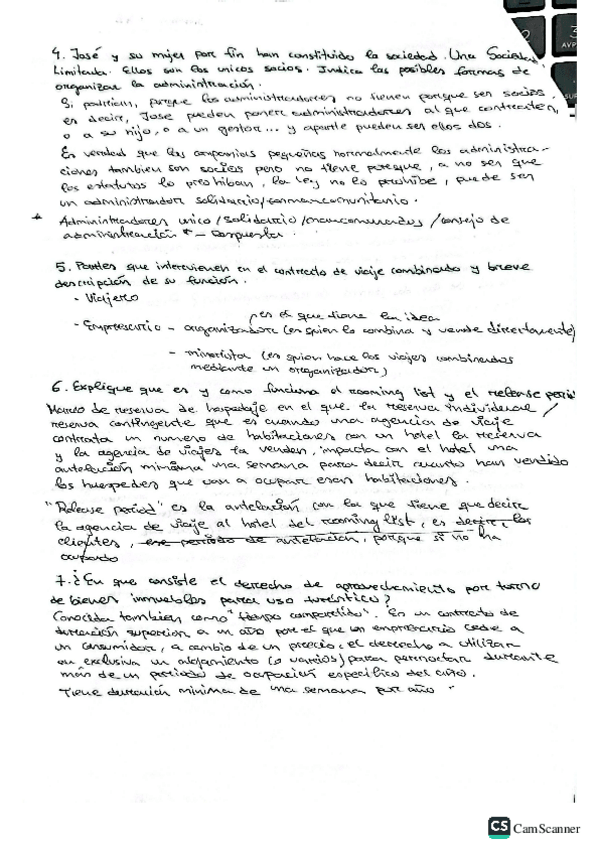 4. José y su mujer por fin han constituido la sociedad. Una Sociedad
Limitada. Ellos son los unicos socios. Indica las posibles formas de
organizar la administración.
Si podrian, porque los administradores no tienen porque ser socios,
es decir, Jose pueden poner administradores al que contraten,
o a su hijo, o a un gestor... y aparte pueden ser ellos dos.
Es verdad que las compañias pequeñas normalmente los administra-
ciones tambien son socios pero no tiene porque, a no ser que
los estatutos lo prohiban, la ley no lo prohibe, puede ser
un administrador solidario/
* Administradores unico/solidario/mancomunados/consejo de
administración * - respuesta.
5. Partes que intervienen en el contrato de viaje combinado y breve
descripción de su función.
- Viajero
es el que tiene la idea
- Empresario - organizador (es quien lo combina y vende directamente)
- minorista (es quien hace los viajes combinados
mediante un organizador)
6. Explique que es y como funciona el rooming list y el release perio
Marco de reserva de hospedaje en el que la reserva individual /
reserva contingente que es cuando una agencia de viaje
contrata un numero de habitaciones con un hotel la reserva
y la agencia de viajes la venden, con el hotel una
antelación minima una semana para decir cuanto han vendido
los huespedes que van a ocupar esas habitaciones.
"Release period" es la antelación con la que tiene que decirle
la agencia de viaje al hotel del rooming list, es decir, los
clientes, ese periodo de antelación, porque si no ha
ocupado
7. ¿En que consiste el derecho de aprovechamiento por turno
de bienes inmuebles para uso turístico?
Conocida tambien como "tiempo compartido". Es un contrato de
duración superior a un año por el que un empresario cede a
un consumidor, a cambio de un precio, el derecho a utilizar
en exclusiva un alojamiento (o varios) para pernoctar durante
más de un periodo de ocupación especifico del año.
Tiene duración minima de una semana por año
CS CamScanner